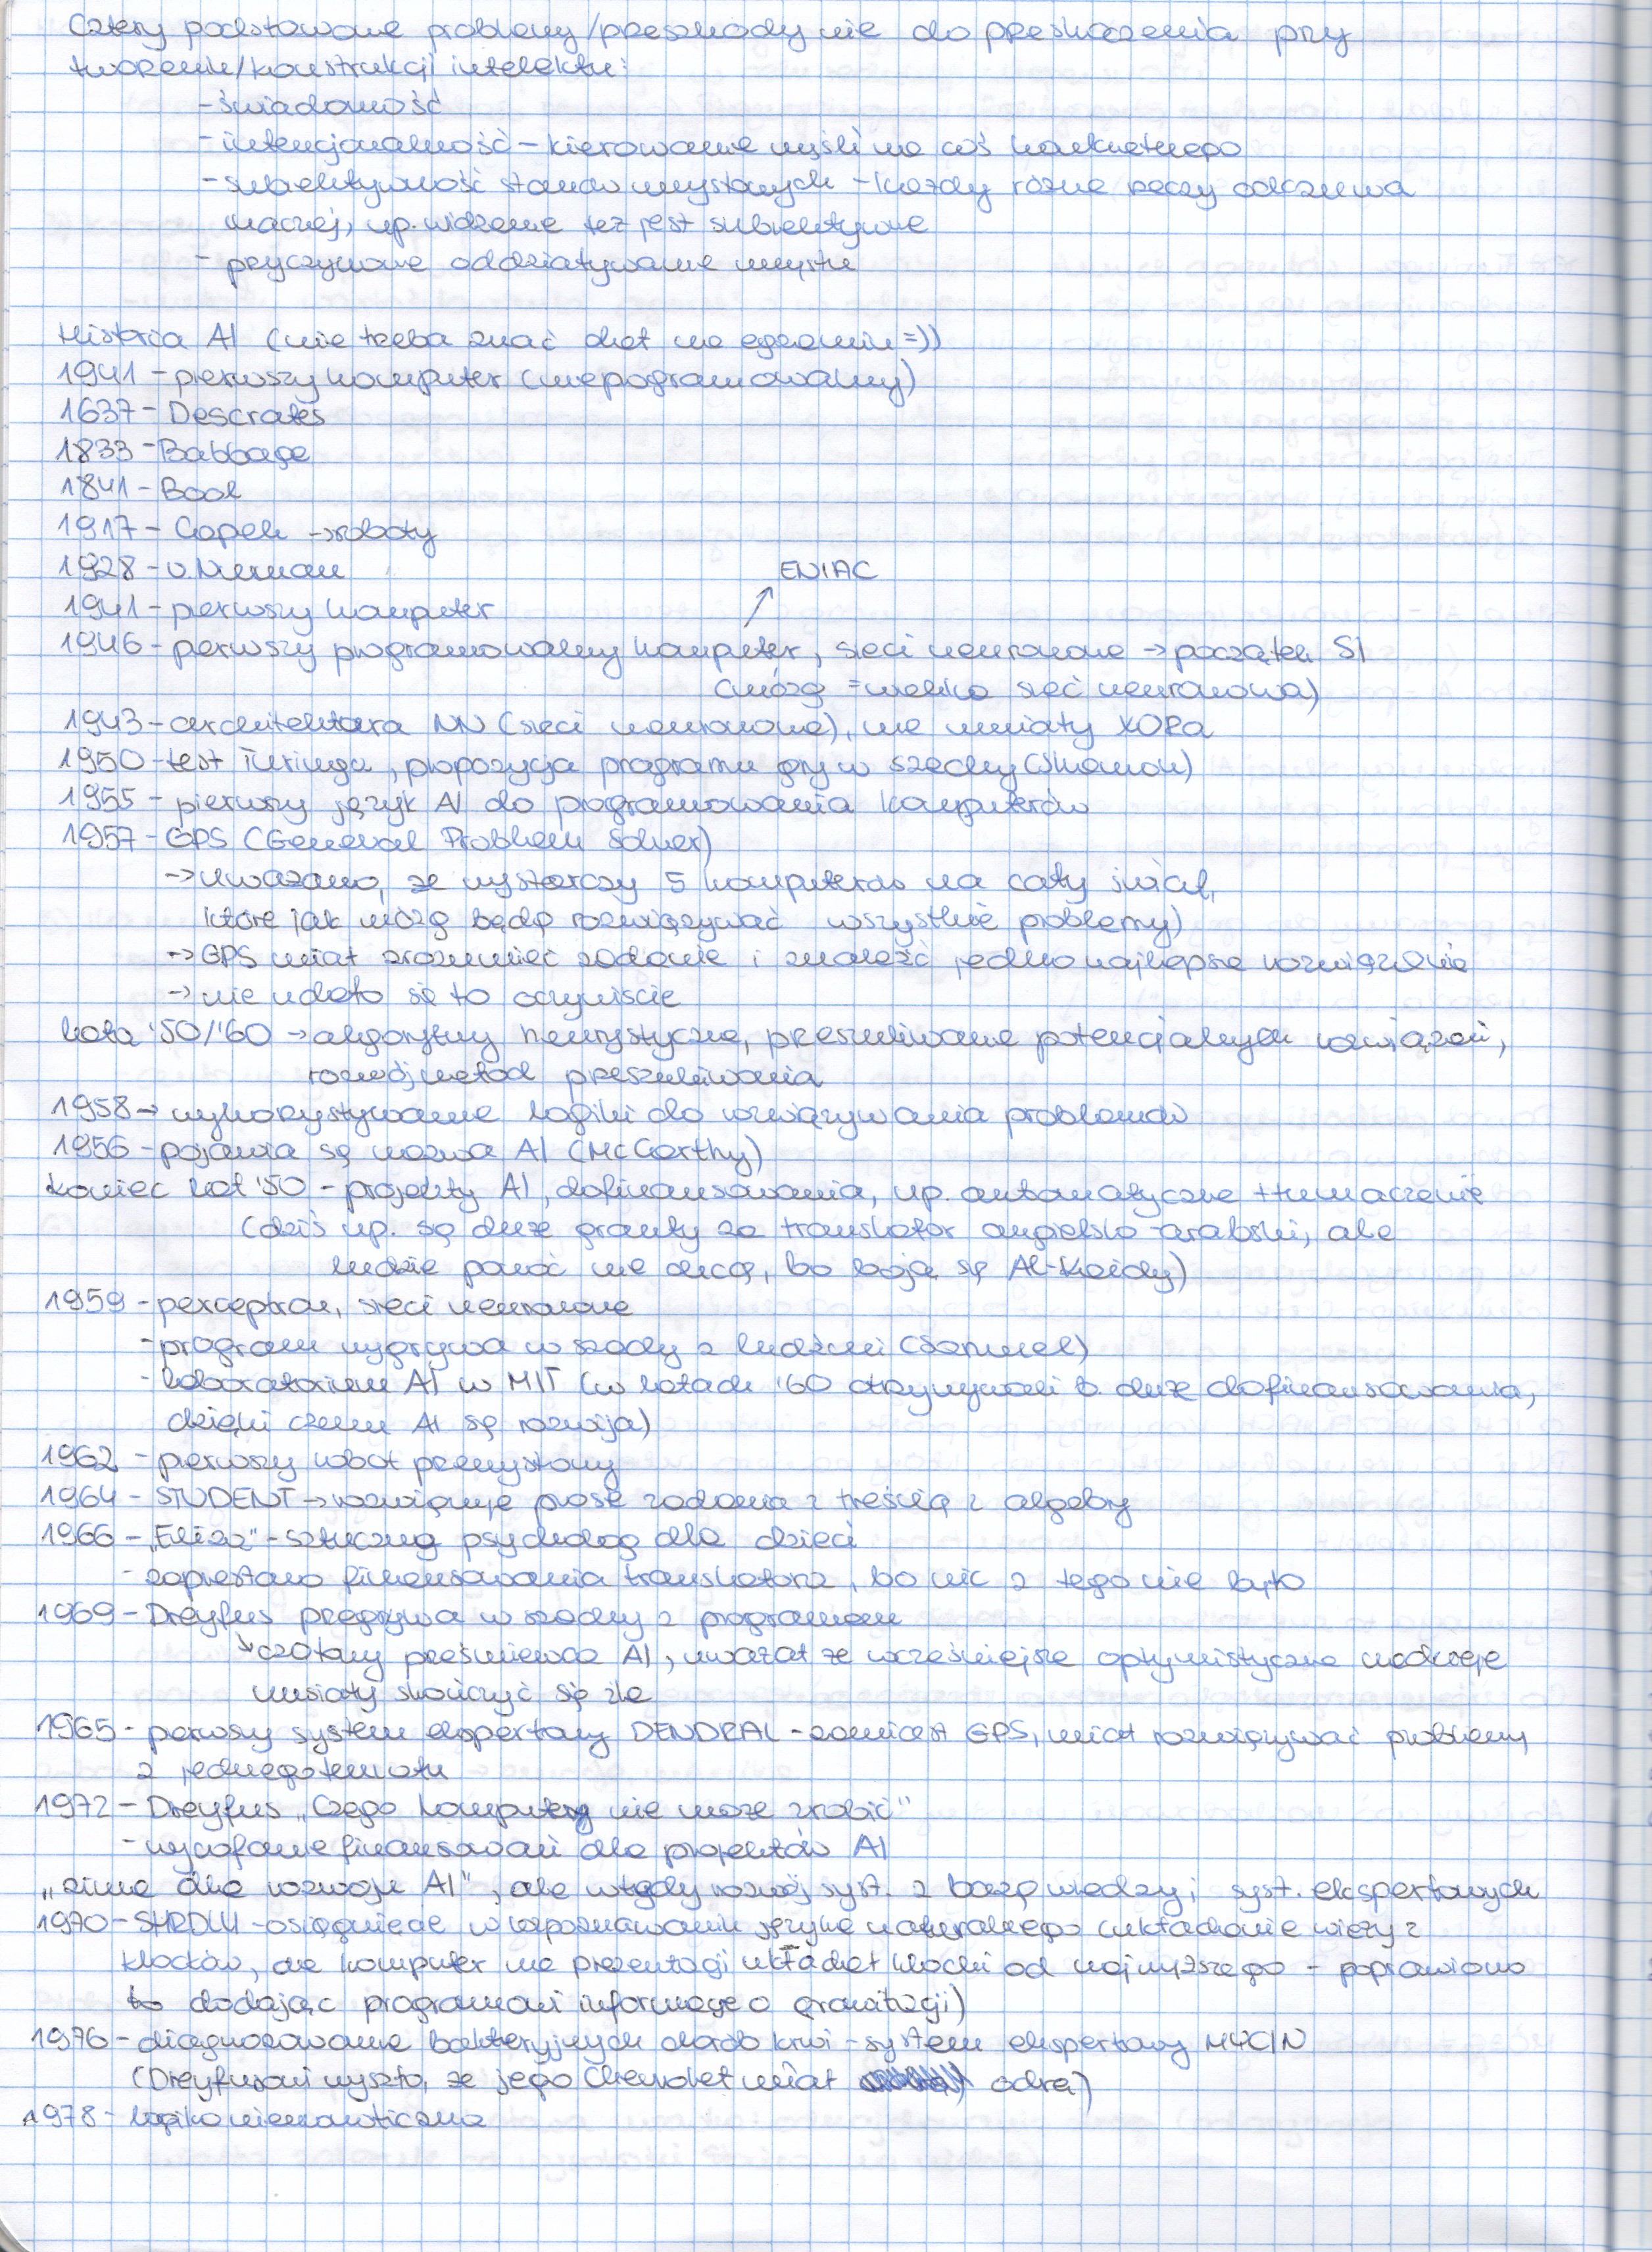 Cztery podstawowe problemy/przeszkody nie do przeskoczenia przy
tworzeniu/konstrukcji intelektu:
- świadomość
- intencjonalność - kierowanie myśli na coś konkretnego
- subiektywność stanów umysłowych - każdy różne rzeczy odczuwa
inaczej, np. widzenie też jest subiektywne
- przyczynowe oddziaływanie umysłu
Historia AI (nie trzeba znać dat na egzamin =))
1941 - pierwszy komputer (nieprogramowalny)
1637 - Descrates
1833 - Babbage
1841 - Bool
1917 - Capek → roboty
1928 - v. Neuman
ENIAC
1941 - pierwszy komputer
1946 - pierwszy programowalny komputer, sieci neuronowe → początek SI
(mózg = wielka sieć neuronowa)
1943 - architektura NN (sieci neuronowe), nie umiały XORa
1950 - test Turinga, propozycja programu gry w szachy (Shannon)
1955 - pierwszy język AI do programowania komputerów
1957 - GPS (General Problem Solver)
→ uważano, że wystarczy 5 komputerów na cały świat,
które jak mózg będą rozwiązywać wszystkie problemy)
→ GPS miał zrozumieć zadanie i znaleźć jedno najlepsze rozwiązanie
→ nie udało się to oczywiście
lata '50/'60 → algorytmy heurystyczne, przeszukiwanie potencjalnych rozwiązań,
rozwój metod przeszukiwania
1958 → wykorzystywanie logiki do rozwiązywania problemów
1956 - pojawia się nazwa AI (McCarthy)
koniec lat '50 - projekty AI, dofinansowania, np. automatyczne tłumaczenie
(dziś np. są duże granty za translator angielsko-arabski, ale
ludzie pomóc nie chcą, bo boją się Al-Kaidy)
1959 - perceptron, sieci neuronowe
- program wygrywa w szachy z ludźmi (Samuel)
- laboratorium AI w MIT (w latach '60 otrzymywali b. duże dofinansowania,
dzięki czemu AI się rozwija)
1962 - pierwszy robot przemysłowy
1964 - STUDENT → rozwiązuje proste zadania z treścią z algebry
1966 - „Eliza" - sztuczny psycholog dla dzieci
- zaprzestano finansowania translatora, bo nic z tego nie było
1969 - Dreyfus przegrywa w szachy z programem
czołowy prześmiewca AI, uważał że wcześniejsze optymistyczne nadzieje
musiały skończyć się źle
1965 - pierwszy system ekspertowy DENDRAL - zamiast GPS, miał rozwiązywać problemy
z jednego tematu
1972 - Dreyfus „Czego komputery nie może zrobić"
- wycofanie finansowań dla projektów AI
„zima dla rozwoju AI", ale wtedy rozwój syst. z bazą wiedzy i syst. ekspertowych
1970 - SHRDLU - osiągnięcie w rozpoznawaniu języka naturalnego (układanie wieży z
klocków, ale komputer na prezentacji układał klocki od najwyższego - poprawiono
to dodając programowi informację o grawitacji)
1976 - diagnozowanie bakteryjnych chorób krwi - system ekspertowy MYCIN
(Dreyfusowi wyszło, że jego Chevrolet miał odrę)
1978 - logika niemonotoniczna